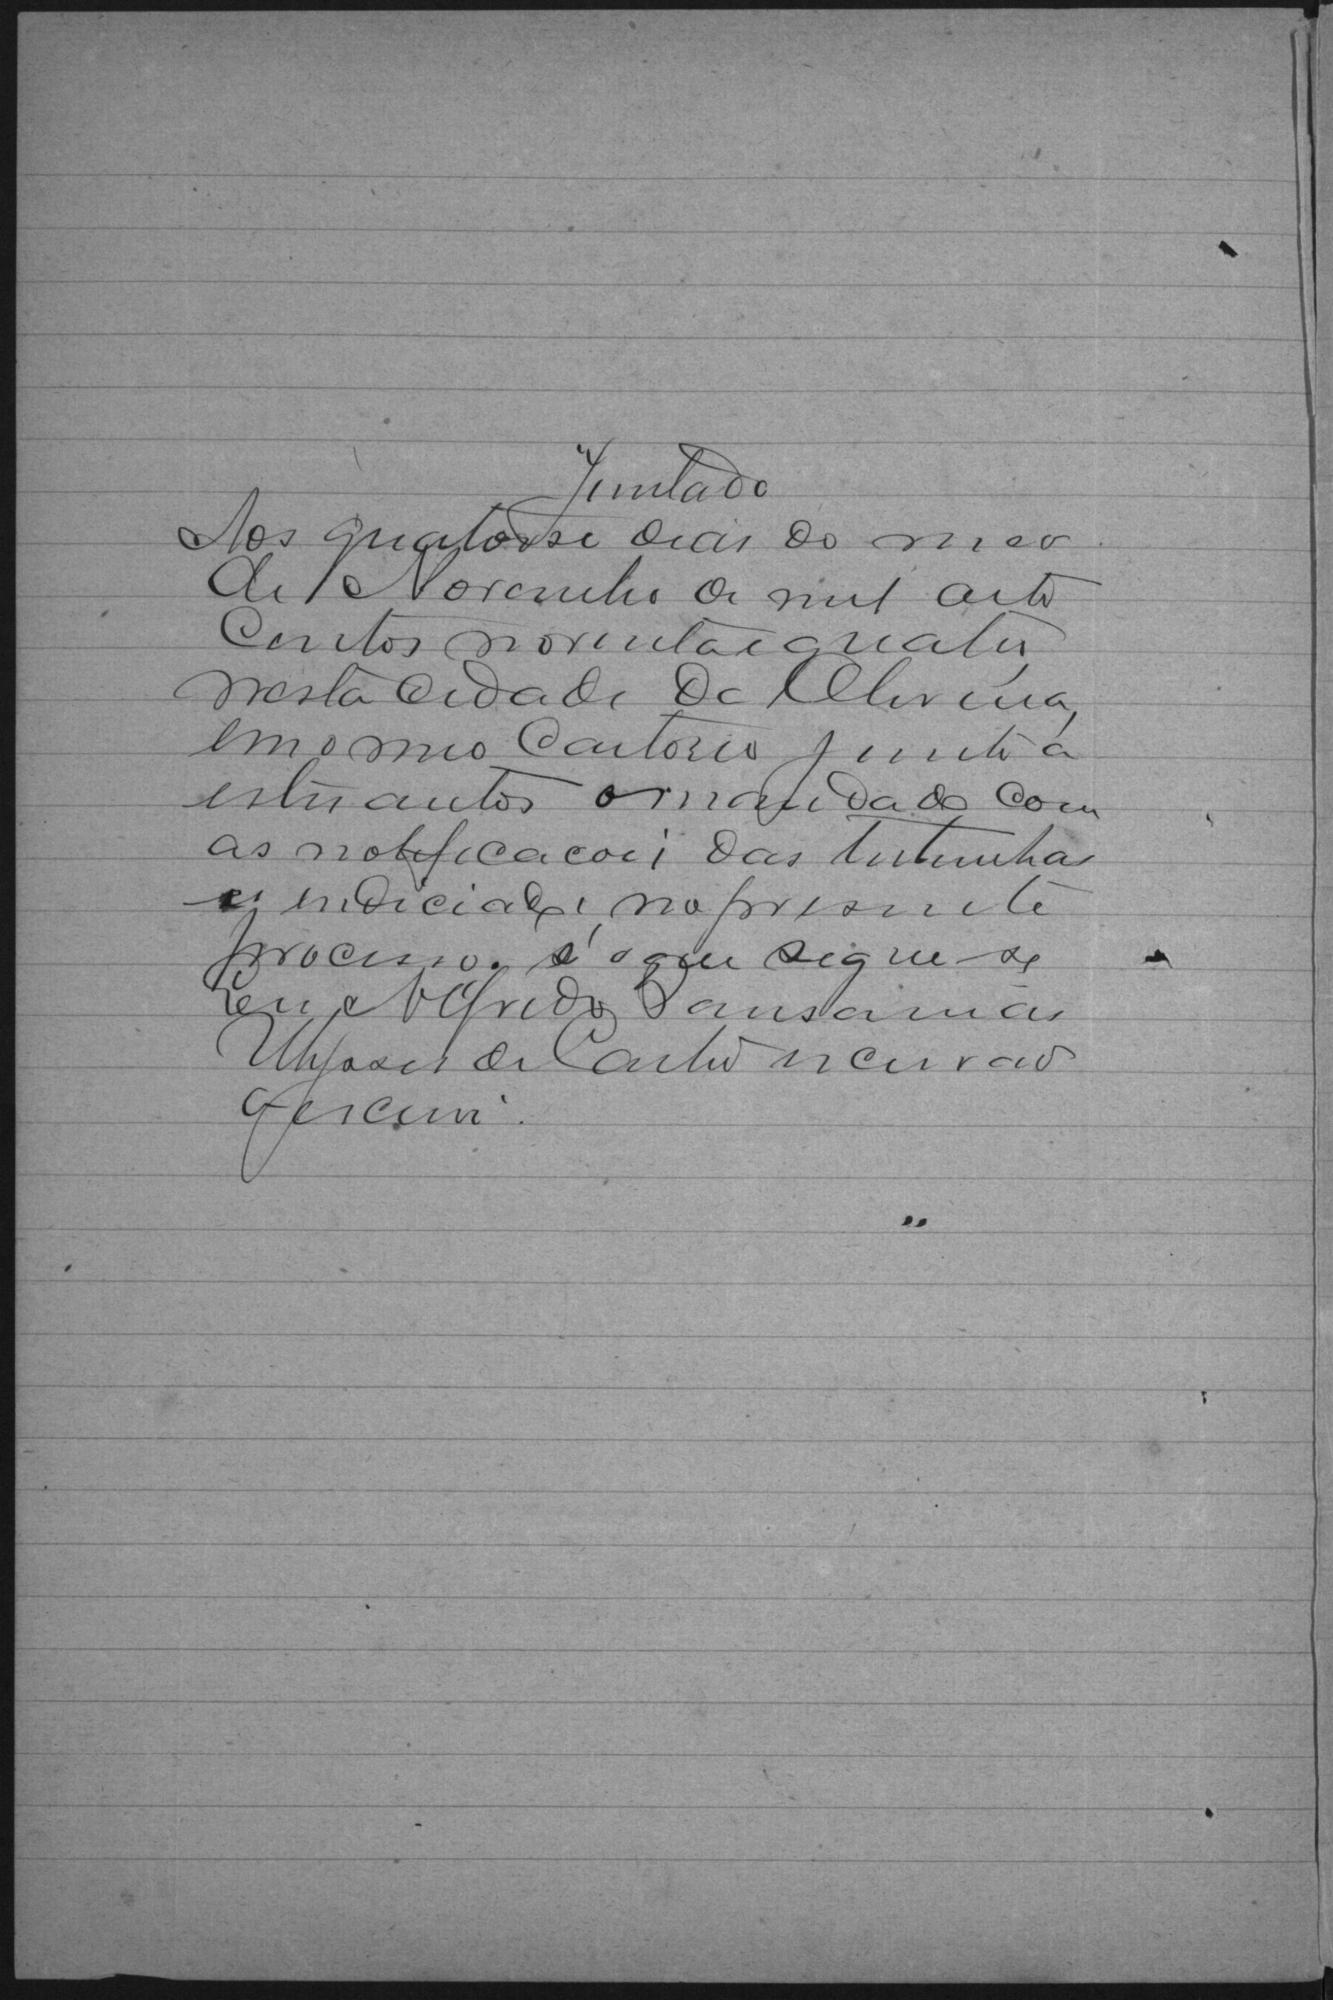 Juntada
Aos quatorse dias do mes
de Novembro de mil oito
Centos noventa e quatro
nesta cidade de Oliveira,
em o meo Cartorio junto a
estes autos o mandado com
as notificacoes das testemunhas
e indiciados, no presente
processo. é o que segue-se
Eu Alfredo Pausanias
Ulysses de Castro escrivão
q escrevi.